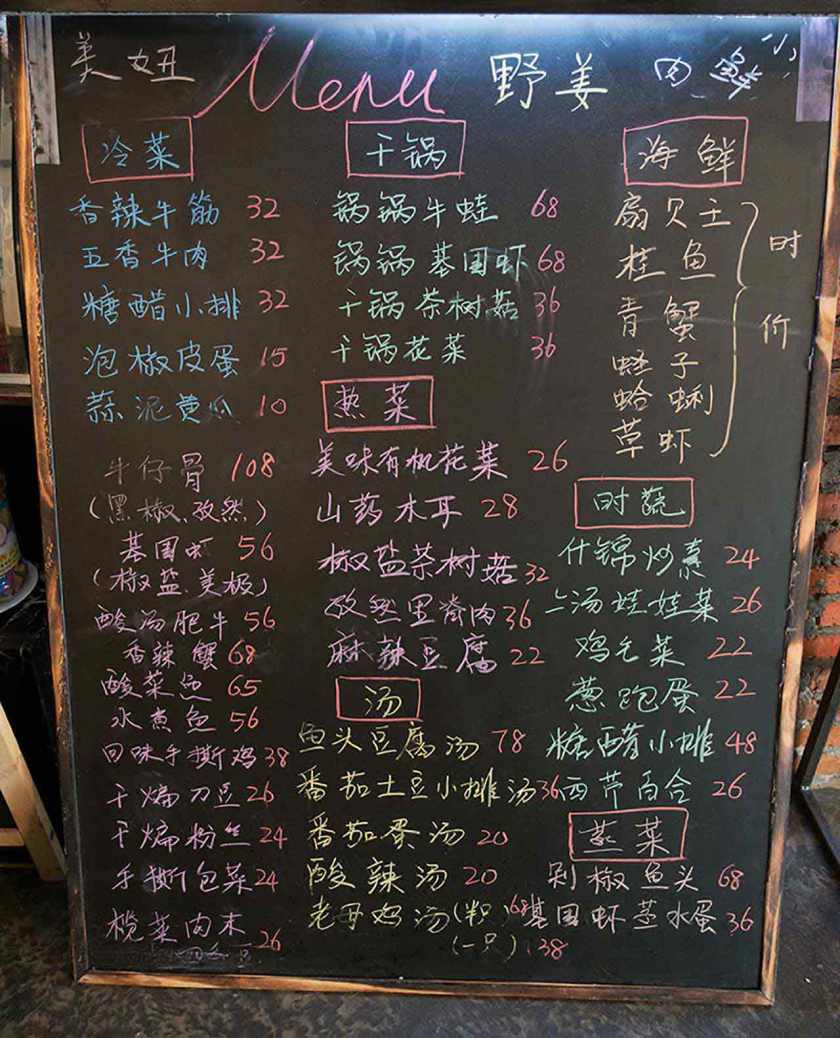 美妞 Menu 野姜 肉鲜小
冷菜
香辣牛筋 32
五香牛肉 32
糖醋小排 32
泡椒皮蛋 15
蒜泥黄瓜 10
牛仔骨 108
(黑椒、孜然)
基国虾 56
(椒盐、美极)
酸汤肥牛 56
香辣蟹 68
酸菜鱼 65
水煮鱼 56
回味手撕鸡 38
干煸刀豆 26
干煸粉丝 24
手撕包菜 24
榄菜肉末 26
干锅
锅锅牛蛙 68
锅锅基国虾 68
干锅茶树菇 36
干锅花菜 36
热菜
美味有机花菜 26
山药木耳 28
椒盐茶树菇 32
孜然里脊肉 36
麻辣豆腐 22
汤
鱼头豆腐汤 78
番茄土豆小排汤 36
番茄蛋汤 20
酸辣汤 20
老母鸡汤 68
(一只) 138
海鲜
扇贝王
桂鱼
青蟹
蛏子
蛤蜊
草虾
时价
时蔬
什锦炒素 24
上汤娃娃菜 26
鸡毛菜 22
葱跑蛋 22
糖醋小排 48
西芹百合 26
蒸菜
剁椒鱼头 68
基国虾蒸水蛋 36